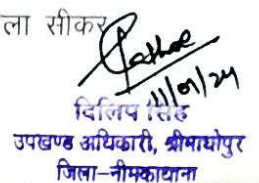 ला सीकर
11/01/24
दिलिप सिंह
उपखण्ड अधिकारी, श्रीमाधोपुर
जिला-नीमकाथाना